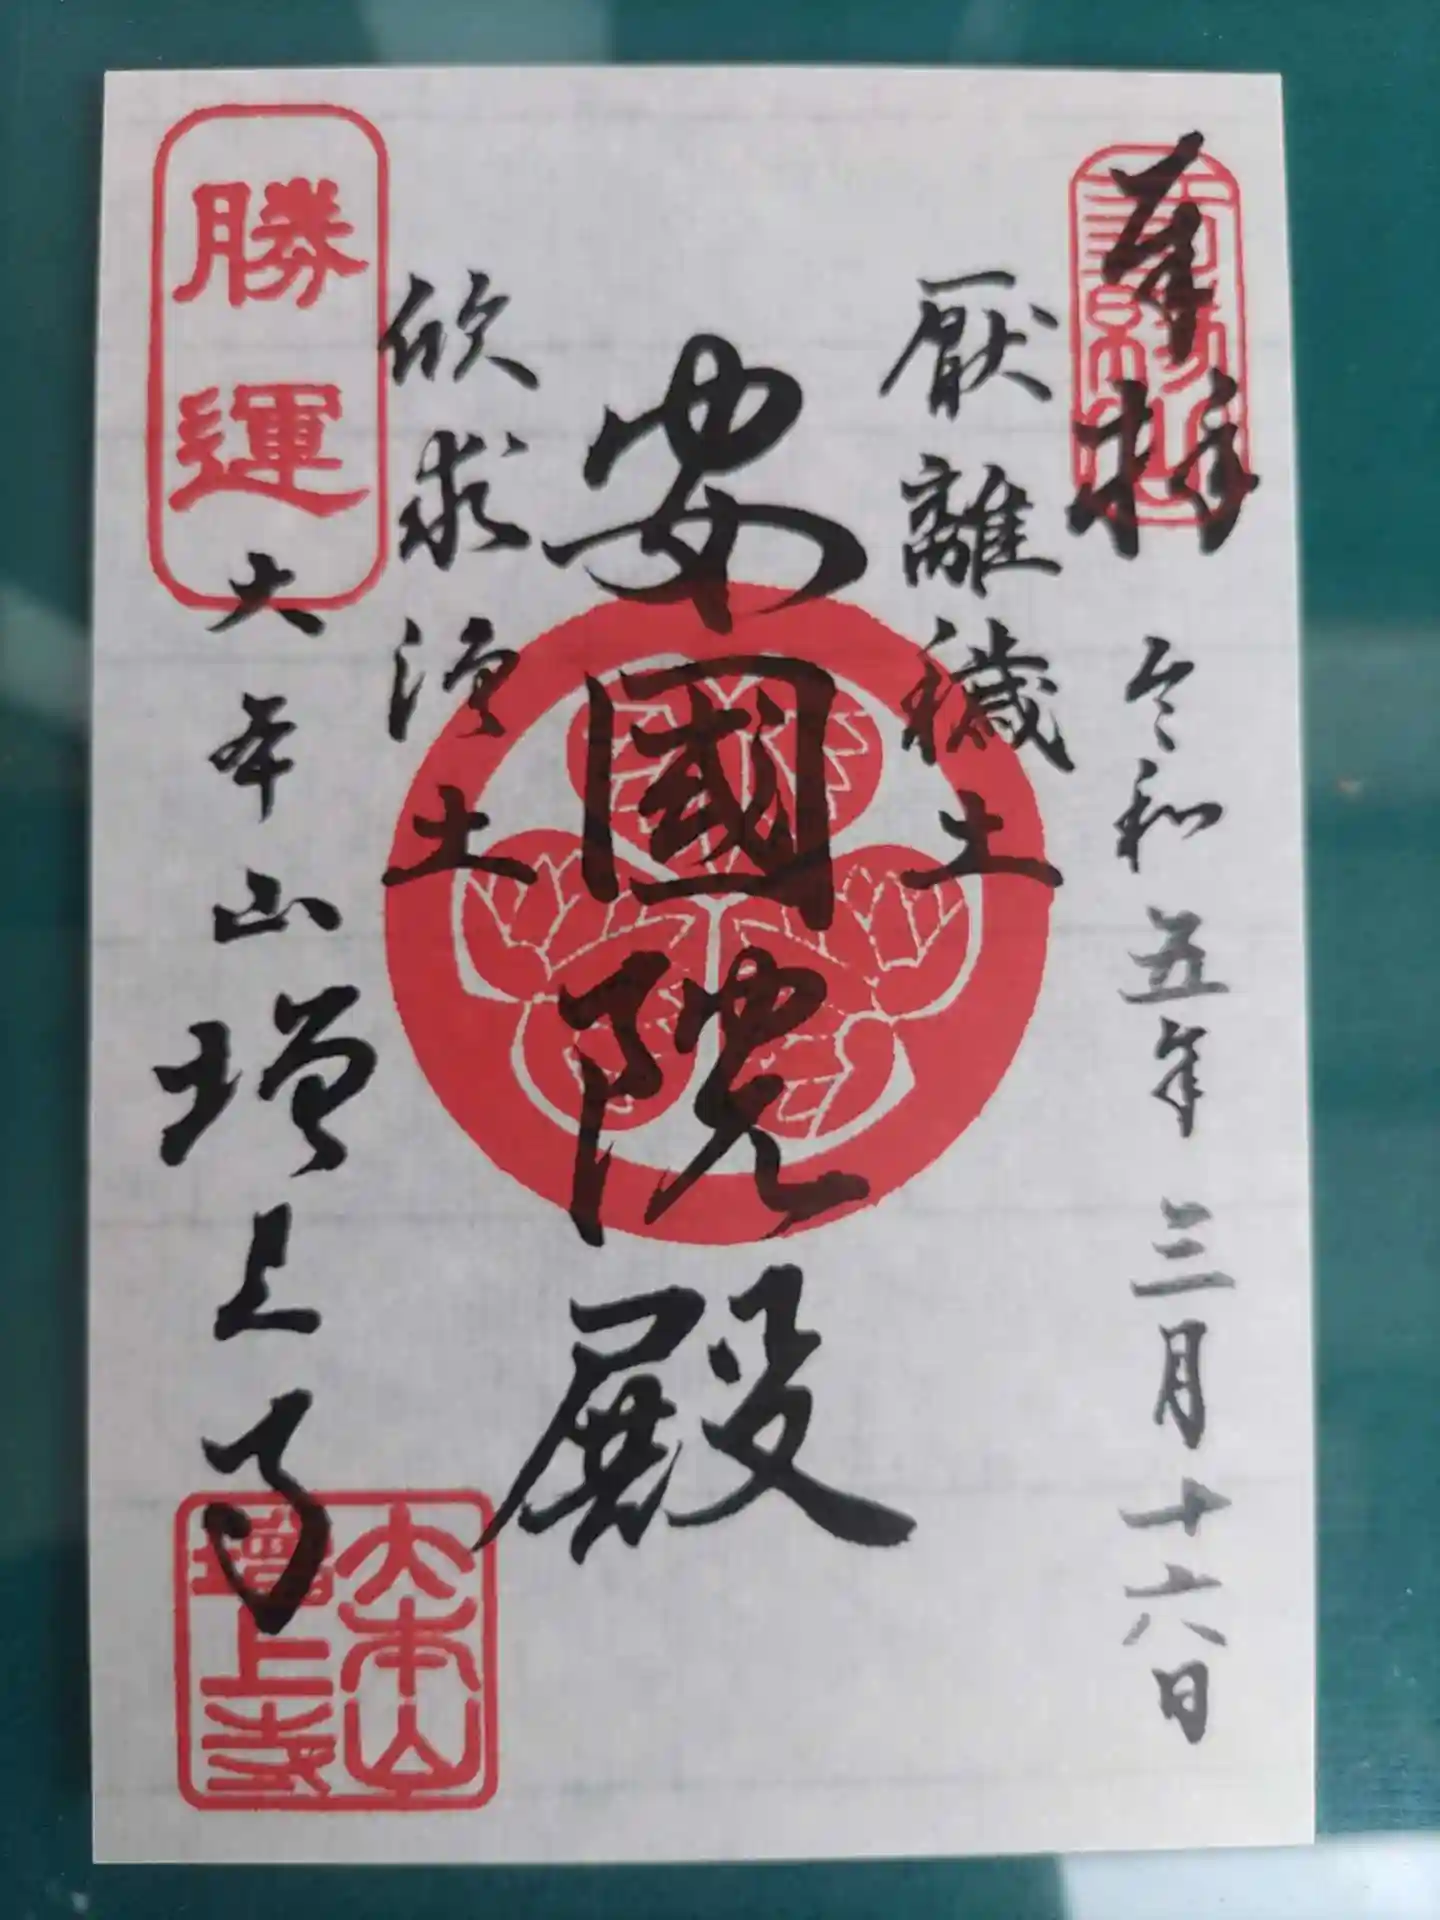 奉拝
令和五年三月十六日
厭離穢土
安國院殿
欣求淨土
勝運
大本山増上寺
大本山
増上寺